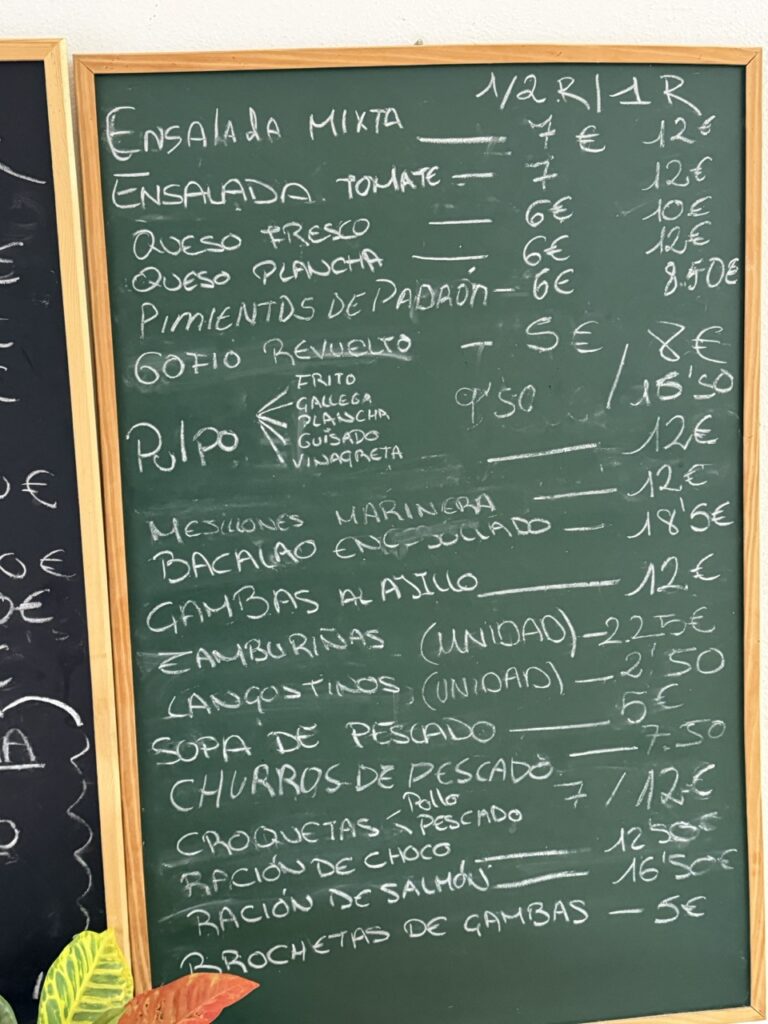 1/2 R | 1 R
ENSALADA MIXTA — 7 € 12€
ENSALADA TOMATE — 7 12€
QUESO FRESCO — 6€ 10€
QUESO PLANCHA — 6€ 12€
PIMIENTOS DE PADRÓN — 6€ 8.50€
GOFIO REVUELTO — 5€ 8€
PULPO
FRITO
GALLEGA
PLANCHA
GUISADO
VINAGRETA
9'50 / 16'50
— 12€
MEJILLONES MARINERA — 12€
BACALAO — 18'5€
GAMBAS AL AJILLO — 12€
ZAMBURIÑAS (UNIDAD) — 2.25€
LANGOSTINOS (UNIDAD) — 2'50
SOPA DE PESCADO — 5€
CHURROS DE PESCADO — 7.50
CROQUETAS Pollo 7 / 12€
PESCADO
RACIÓN DE CHOCO — 12'50€
RACIÓN DE SALMÓN — 16'50€
BROCHETAS DE GAMBAS — 5€